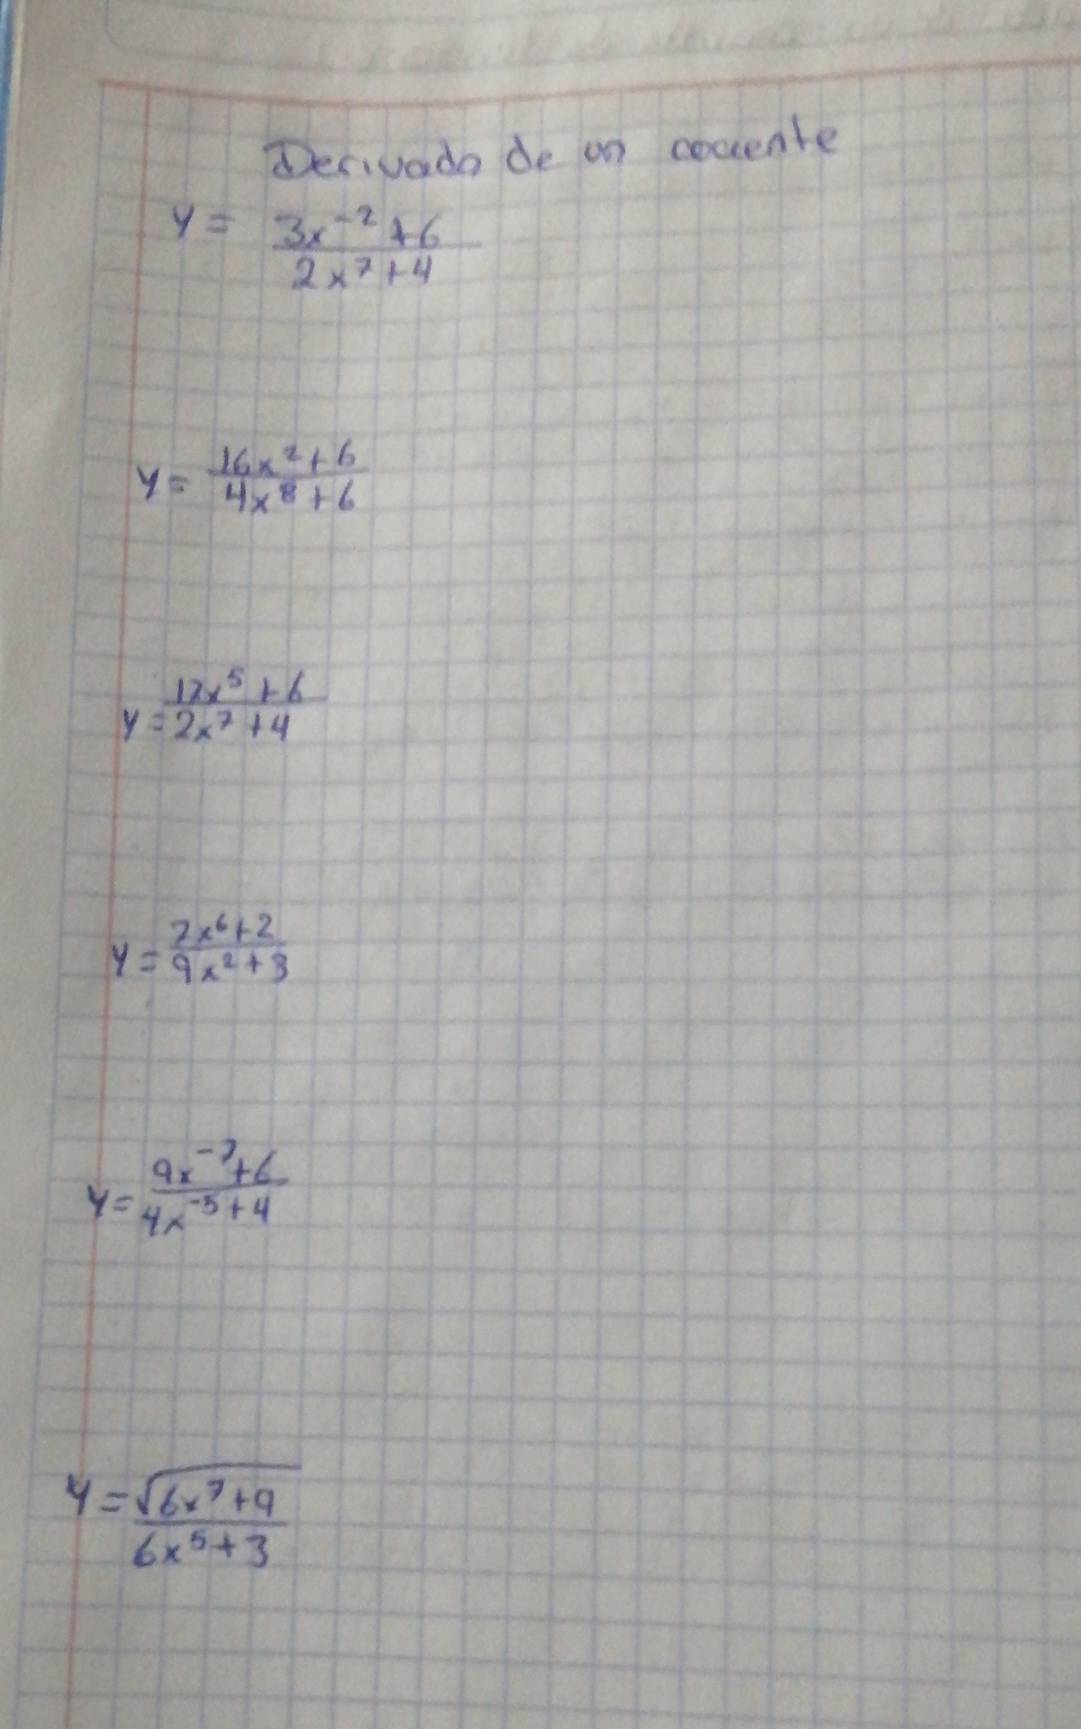 Derivada de un cociente
y = 3x⁻² + 6
2x⁷ + 4
y = 16x² + 6
4x⁸ + 6
y = 12x⁵ + 6
2x⁷ + 4
y = 7x⁶ + 2
9x² + 3
y = 9x⁻⁷ + 6
4x⁻⁵ + 4
y = √6x⁷ + 9
6x⁵ + 3